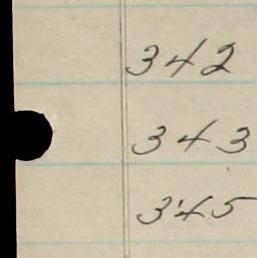 342
343
345